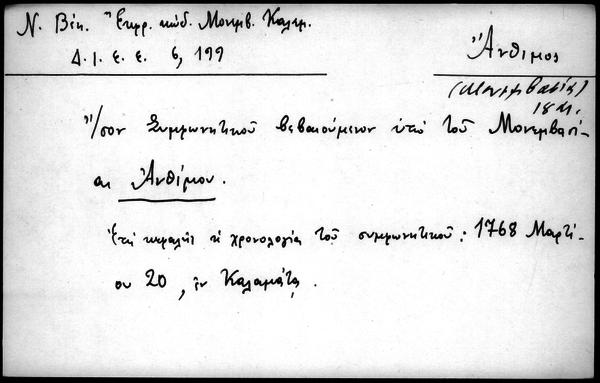 Ν. Βέη. Ἔκφρ. κώδ. Μονεμβ. Καλαμ.
Δ. Ι. Ε. Ε. 6, 199
Ἄνθιμος
(Μονεμβασία)
18 αι.
Ἴσον Συμφωνητικοῦ βεβαιούμενον ὑπὸ τοῦ Μονεμβασί-
ας Ἀνθίμου.
Ἐπὶ κεφαλῆς ἡ χρονολογία τοῦ συμφωνητικοῦ: 1768 Μαρτί-
ου 20, ἐν Καλαμάτᾳ.